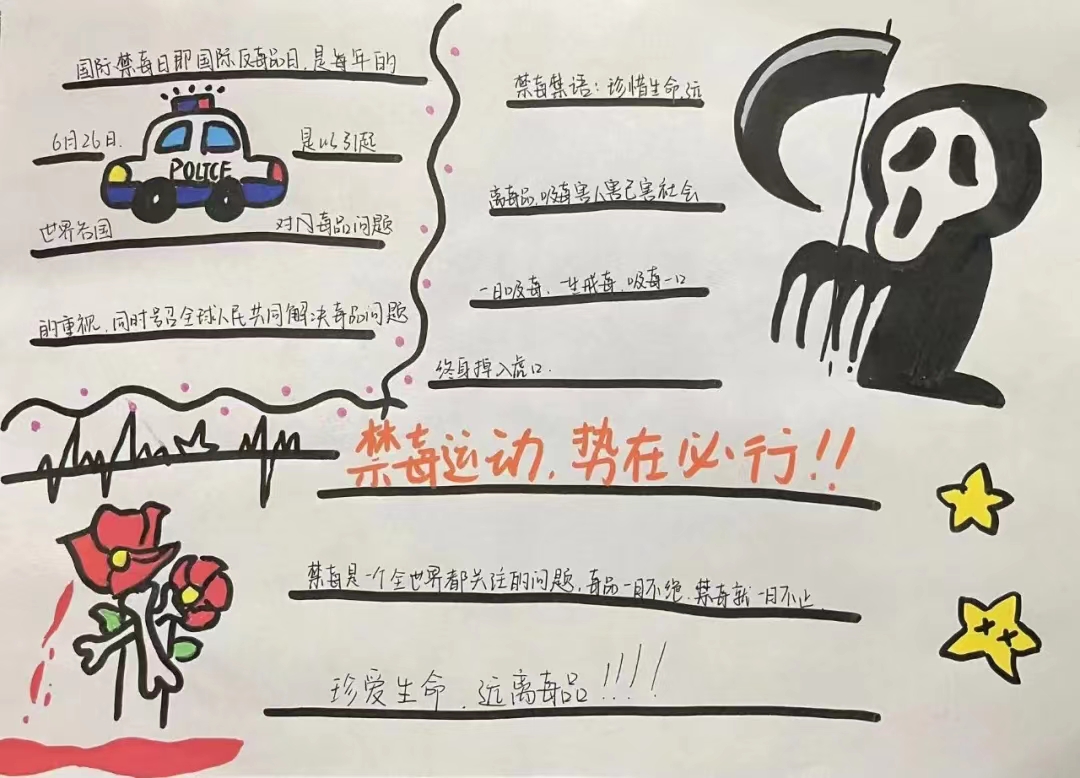 国际禁毒日即国际反毒品日,是每年的
6月26日.
POLICE
是以引起
世界各国
对问毒品问题
的重视,同时号召全球人民共同解决毒品问题
禁毒禁语:珍惜生命远
离毒品,吸毒害人害己害社会
一日吸毒,一生戒毒,吸毒一口
终身掉入虎口.
禁毒运动,势在必行!!
禁毒是一个全世界都关注的问题,毒品一日不绝.禁毒就一日不止.
珍爱生命.远离毒品!!!!